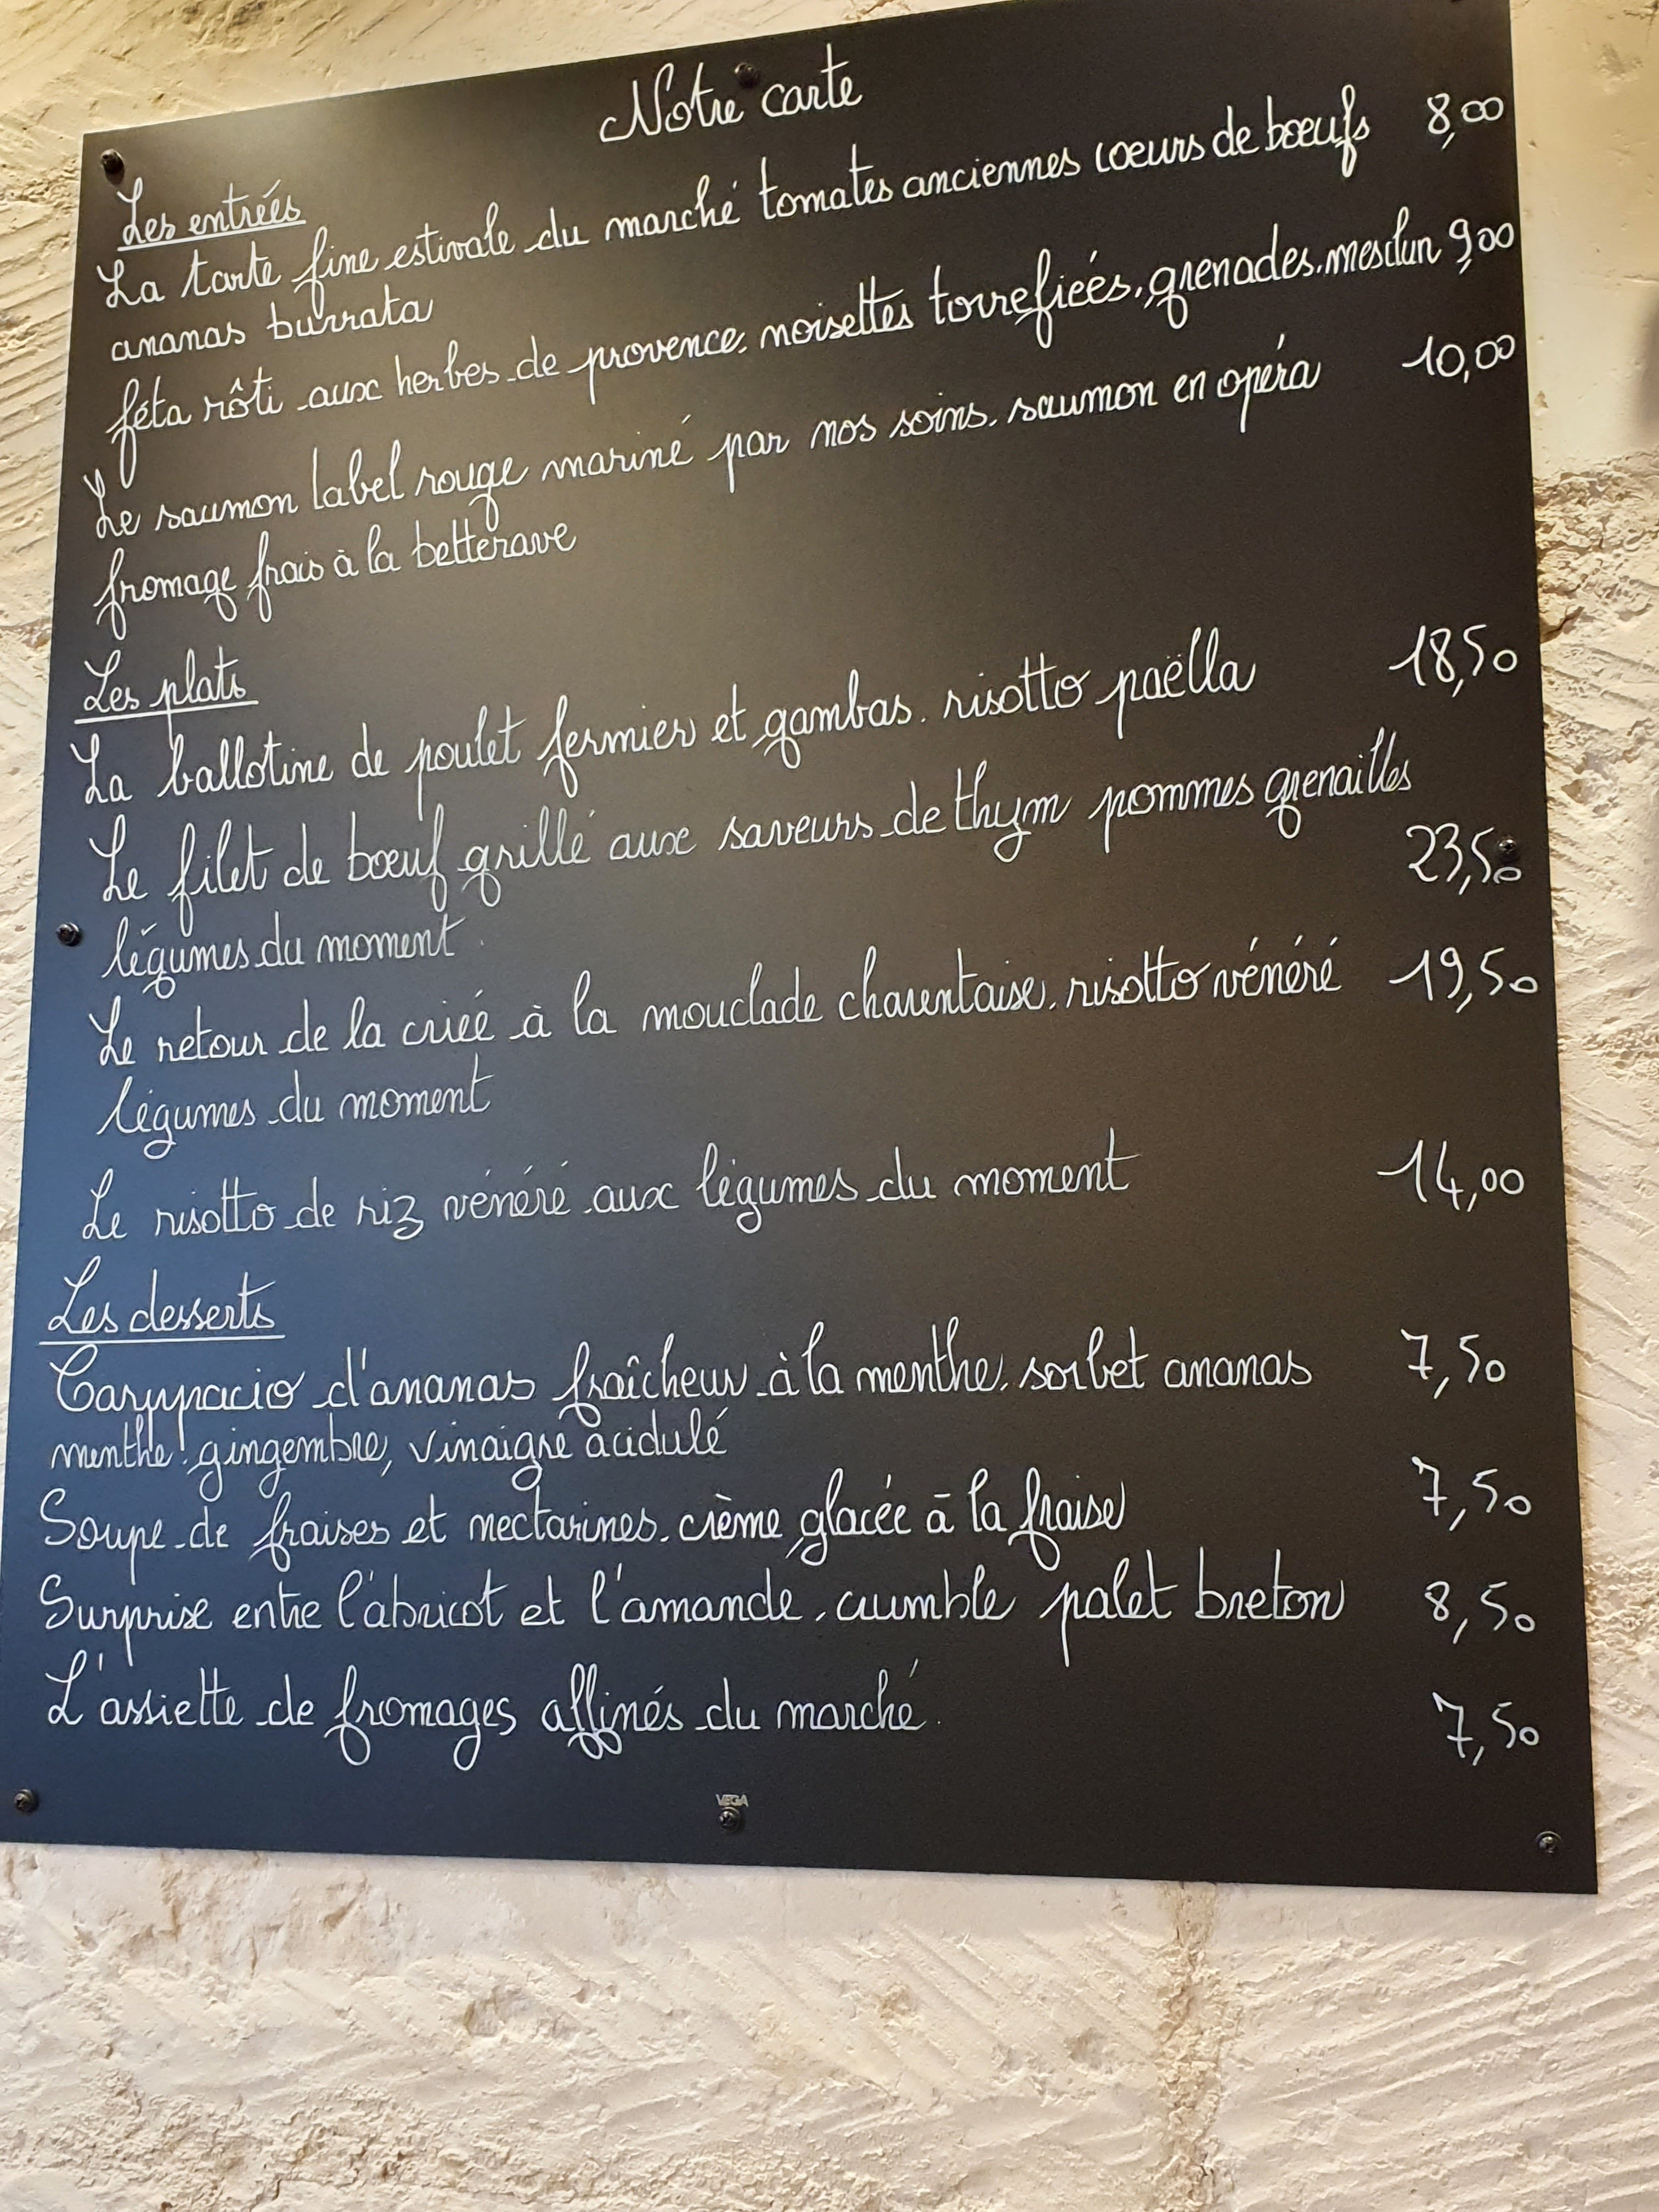 Notre carte
Les entrées
La tarte fine estivale du marché tomates anciennes coeurs de boeufs 8,00
ananas burrata
féta rôti aux herbes de provence, noisettes torrefiées, grenades, mesclun 9,00
Le saumon label rouge mariné par nos soins, saumon en opéra 10,00
fromage frais à la betterave
Les plats
La ballotine de poulet fermier et gambas, risotto paëlla 18,50
Le filet de boeuf grillé aux saveurs de thym pommes grenailles
23,50
légumes du moment.
Le retour de la criée à la mouclade charentaise, risotto vénéré 19,50
légumes du moment
Le risotto de riz vénéré aux légumes du moment 14,00
Les desserts
Carpaccio d'ananas fraîcheur à la menthe, sorbet ananas 7,50
menthe, gingembre, vinaigre acidulé
Soupe de fraises et nectarines, crème glacée à la fraise 7,50
Surprise entre l'abricot et l'amande, crumble palet breton 8,50
L'assiette de fromages affinés du marché. 7,50
VEGA